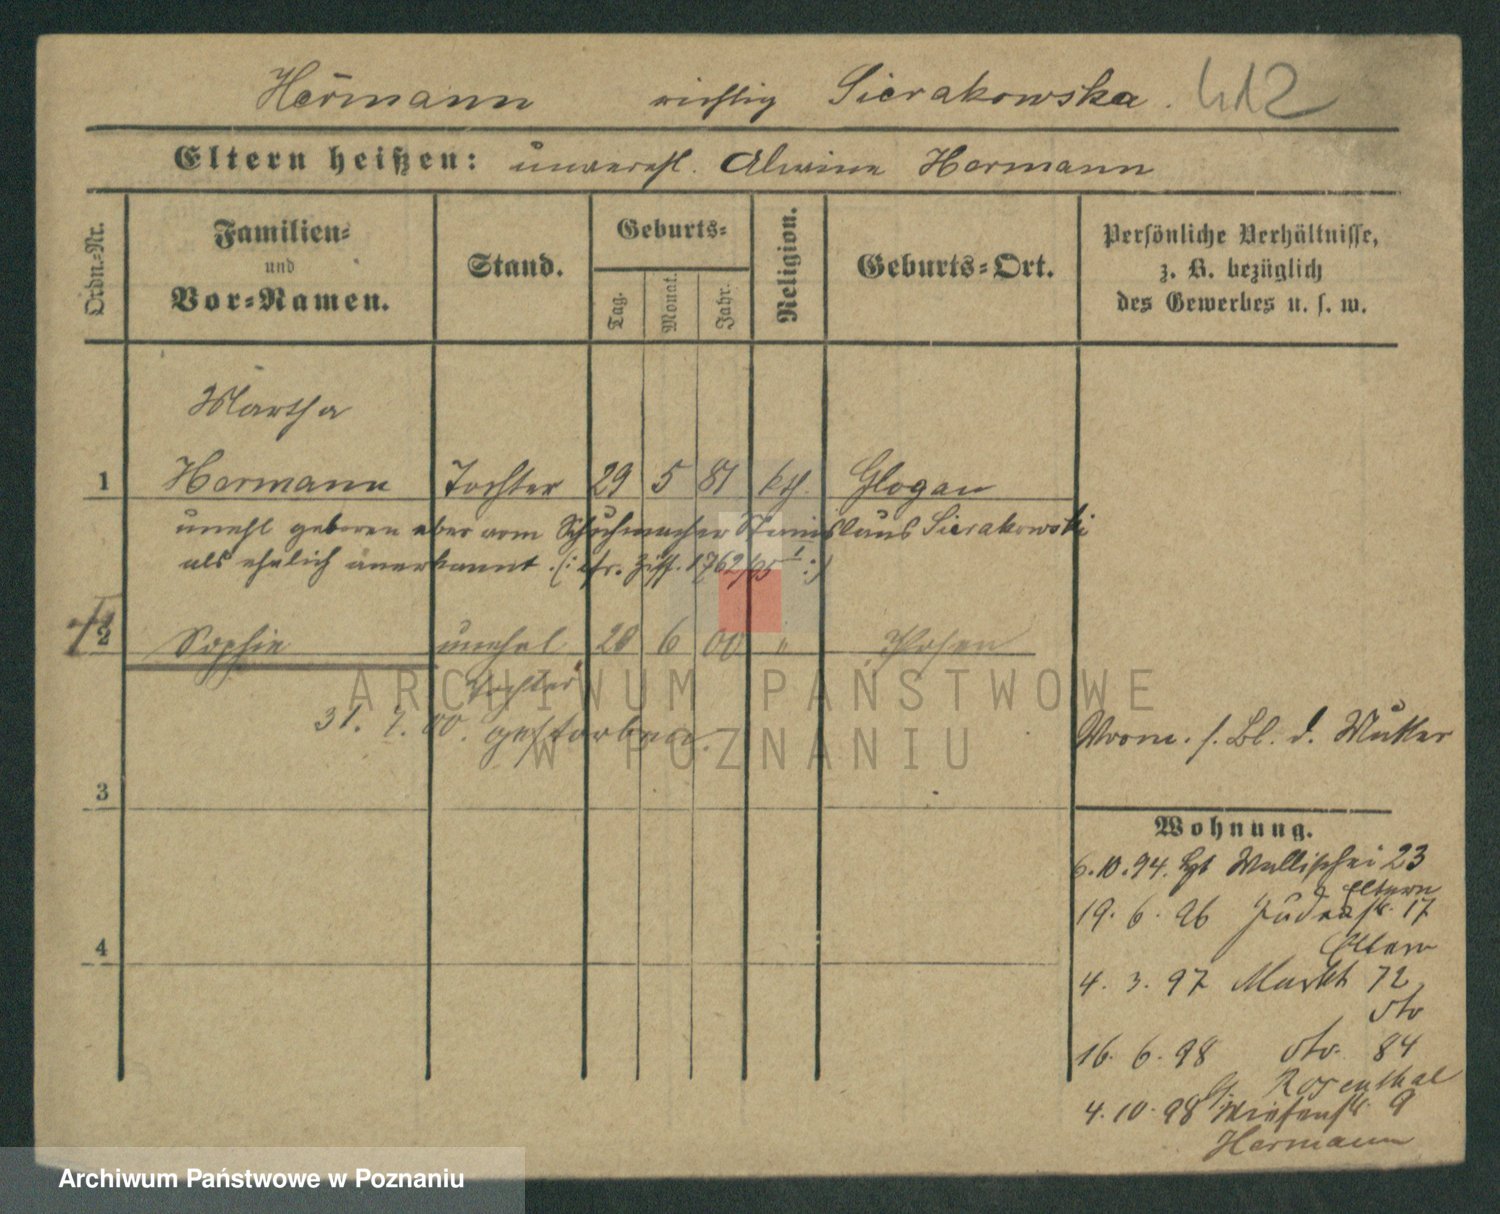 Hermann richtig Sierakowska. 412
Eltern heißen: unverehl. Alwine Hermann
Ordn.-Nr.
Familien-
und
Vor-Namen.
Stand.
Geburts-
Tag.
Monat.
Jahr.
Religion.
Geburts-Ort.
Persönliche Verhältnisse,
z. B. bezüglich
des Gewerbes u. s. w.
Martha
1 Hermann Tochter 29 5 81 kth. Glogau
unehl geboren aber vom Schuhmacher Stanislaus Sierakowski
als ehelich anerkannt. (: cfr. Ziff. 1762/95 I :)
2 Sophie unehel 28 6 00 " Posen
Tochter
31. 7. 00. gestorben.
Vorm. s. Bl. d. Mutter
3
Wohnung.
6.10.94. Wallischei 23
Eltern
19. 6. 96 Judenstr. 17
Eltern
4
4. 3. 97 Markt 72
dto
16. 6. 98 dto. 84
Rosenthal
4.10.98 Wiesenstr. 9
Hermann
ARCHIWUM PAŃSTWOWE
W POZNANIU
Archiwum Państwowe w Poznaniu